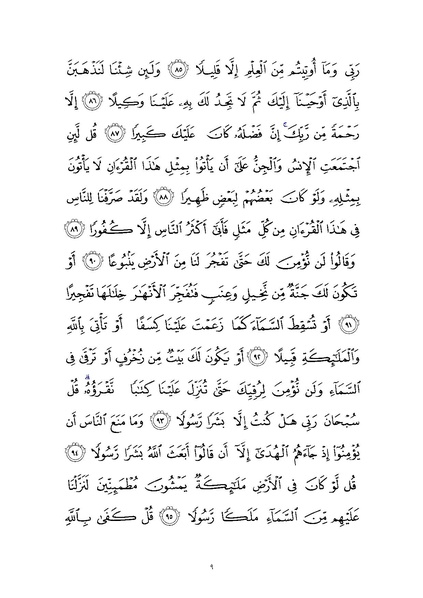 رَبِّى وَمَآ أُوتِيتُم مِّنَ ٱلْعِلْمِ إِلَّا قَلِيلًا ﴿٨٥﴾ وَلَئِن شِئْنَا لَنَذْهَبَنَّ
بِٱلَّذِىٓ أَوْحَيْنَآ إِلَيْكَ ثُمَّ لَا تَجِدُ لَكَ بِهِۦ عَلَيْنَا وَكِيلًا ﴿٨٦﴾ إِلَّا
رَحْمَةً مِّن رَّبِّكَ ۚ إِنَّ فَضْلَهُۥ كَانَ عَلَيْكَ كَبِيرًا ﴿٨٧﴾ قُل لَّئِنِ
ٱجْتَمَعَتِ ٱلْإِنسُ وَٱلْجِنُّ عَلَىٰٓ أَن يَأْتُوا۟ بِمِثْلِ هَٰذَا ٱلْقُرْءَانِ لَا يَأْتُونَ
بِمِثْلِهِۦ وَلَوْ كَانَ بَعْضُهُمْ لِبَعْضٍ ظَهِيرًا ﴿٨٨﴾ وَلَقَدْ صَرَّفْنَا لِلنَّاسِ
فِى هَٰذَا ٱلْقُرْءَانِ مِن كُلِّ مَثَلٍ فَأَبَىٰٓ أَكْثَرُ ٱلنَّاسِ إِلَّا كُفُورًا ﴿٨٩﴾
وَقَالُوا۟ لَن نُّؤْمِنَ لَكَ حَتَّىٰ تَفْجُرَ لَنَا مِنَ ٱلْأَرْضِ يَنۢبُوعًا ﴿٩٠﴾ أَوْ
تَكُونَ لَكَ جَنَّةٌ مِّن نَّخِيلٍ وَعِنَبٍ فَتُفَجِّرَ ٱلْأَنْهَٰرَ خِلَٰلَهَا تَفْجِيرًا
﴿٩١﴾ أَوْ تُسْقِطَ ٱلسَّمَآءَ كَمَا زَعَمْتَ عَلَيْنَا كِسَفًا أَوْ تَأْتِىَ بِٱللَّهِ
وَٱلْمَلَٰٓئِكَةِ قَبِيلًا ﴿٩٢﴾ أَوْ يَكُونَ لَكَ بَيْتٌ مِّن زُخْرُفٍ أَوْ تَرْقَىٰ فِى
ٱلسَّمَآءِ وَلَن نُّؤْمِنَ لِرُقِيِّكَ حَتَّىٰ تُنَزِّلَ عَلَيْنَا كِتَٰبًا نَّقْرَؤُهُۥ ۗ قُلْ
سُبْحَانَ رَبِّى هَلْ كُنتُ إِلَّا بَشَرًا رَّسُولًا ﴿٩٣﴾ وَمَا مَنَعَ ٱلنَّاسَ أَن
يُؤْمِنُوٓا۟ إِذْ جَآءَهُمُ ٱلْهُدَىٰٓ إِلَّآ أَن قَالُوٓا۟ أَبَعَثَ ٱللَّهُ بَشَرًا رَّسُولًا ﴿٩٤﴾
قُل لَّوْ كَانَ فِى ٱلْأَرْضِ مَلَٰٓئِكَةٌ يَمْشُونَ مُطْمَئِنِّينَ لَنَزَّلْنَا
عَلَيْهِم مِّنَ ٱلسَّمَآءِ مَلَكًا رَّسُولًا ﴿٩٥﴾ قُلْ كَفَىٰ بِٱللَّهِ
٩